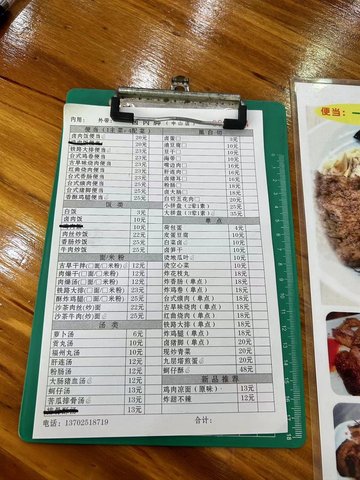 内用: 外带: 肉脚(中山店)
便当(1主菜+4配菜)
卤肉饭便当 20元
铁路大排便当 23元
台式鸡卷便当 23元
古早味烧肉便当 23元
红曲烧肉便当 23元
台式香肠便当 23元
台式烧肉便当 23元
香酥鸡腿便当 25元
饭类
白饭 3元
卤肉饭 10元
肉丝炒饭 22元
香肠炒饭 22元
牛肉炒饭 25元
面/米粉
古早干拌(□面/□米粉) 12元
肉燥干(□面/□米粉) 12元
肉燥汤(□面/□米粉) 12元
铁路大排(□面/□米粉) 23元
酥炸鸡腿(□面/□米粉) 25元
沙茶肉丝(炒)面 22元
沙茶牛肉(炒)面 25元
汤类
萝卜汤 6元
贡丸汤 10元
福州丸汤 10元
肝连汤 12元
粉肠汤 12元
大肠猪血汤 12元
蚵仔汤 12元
苦瓜排骨汤 13元
13元
电话: 13702518719
卤蛋□ 3元
油豆腐□
豆干□
海带□
鸭边肉□
肝连肉□
卤猪耳□
粉肠□ 18元
卤大肠□ 18元
白切五花肉□ 20元
小拼盘(2荤1素) 25元
大拼盘(3荤2素) 35元
单点
荷包蛋 4元
皮蛋豆腐 10元
白菜卤 10元
卤笋干 10元
烫地瓜叶 10元
烫空心菜 10元
炸花枝丸 18元
炸香肠(单点) 18元
炸鸡卷(单点) 18元
台式烧肉(单点) 18元
古早味烧肉(单点) 18元
红曲烧肉(单点) 18元
铁路大排(单点) 18元
炸鸡腿(单点) 20元
卤猪脚(单点) 20元
现炒青菜 20元
九层塔煎蛋 20元
蚵仔酥 48元
新品推荐
鸡肉凉面(原味) 13元
炸甜不辣 12元
合计:
便当: